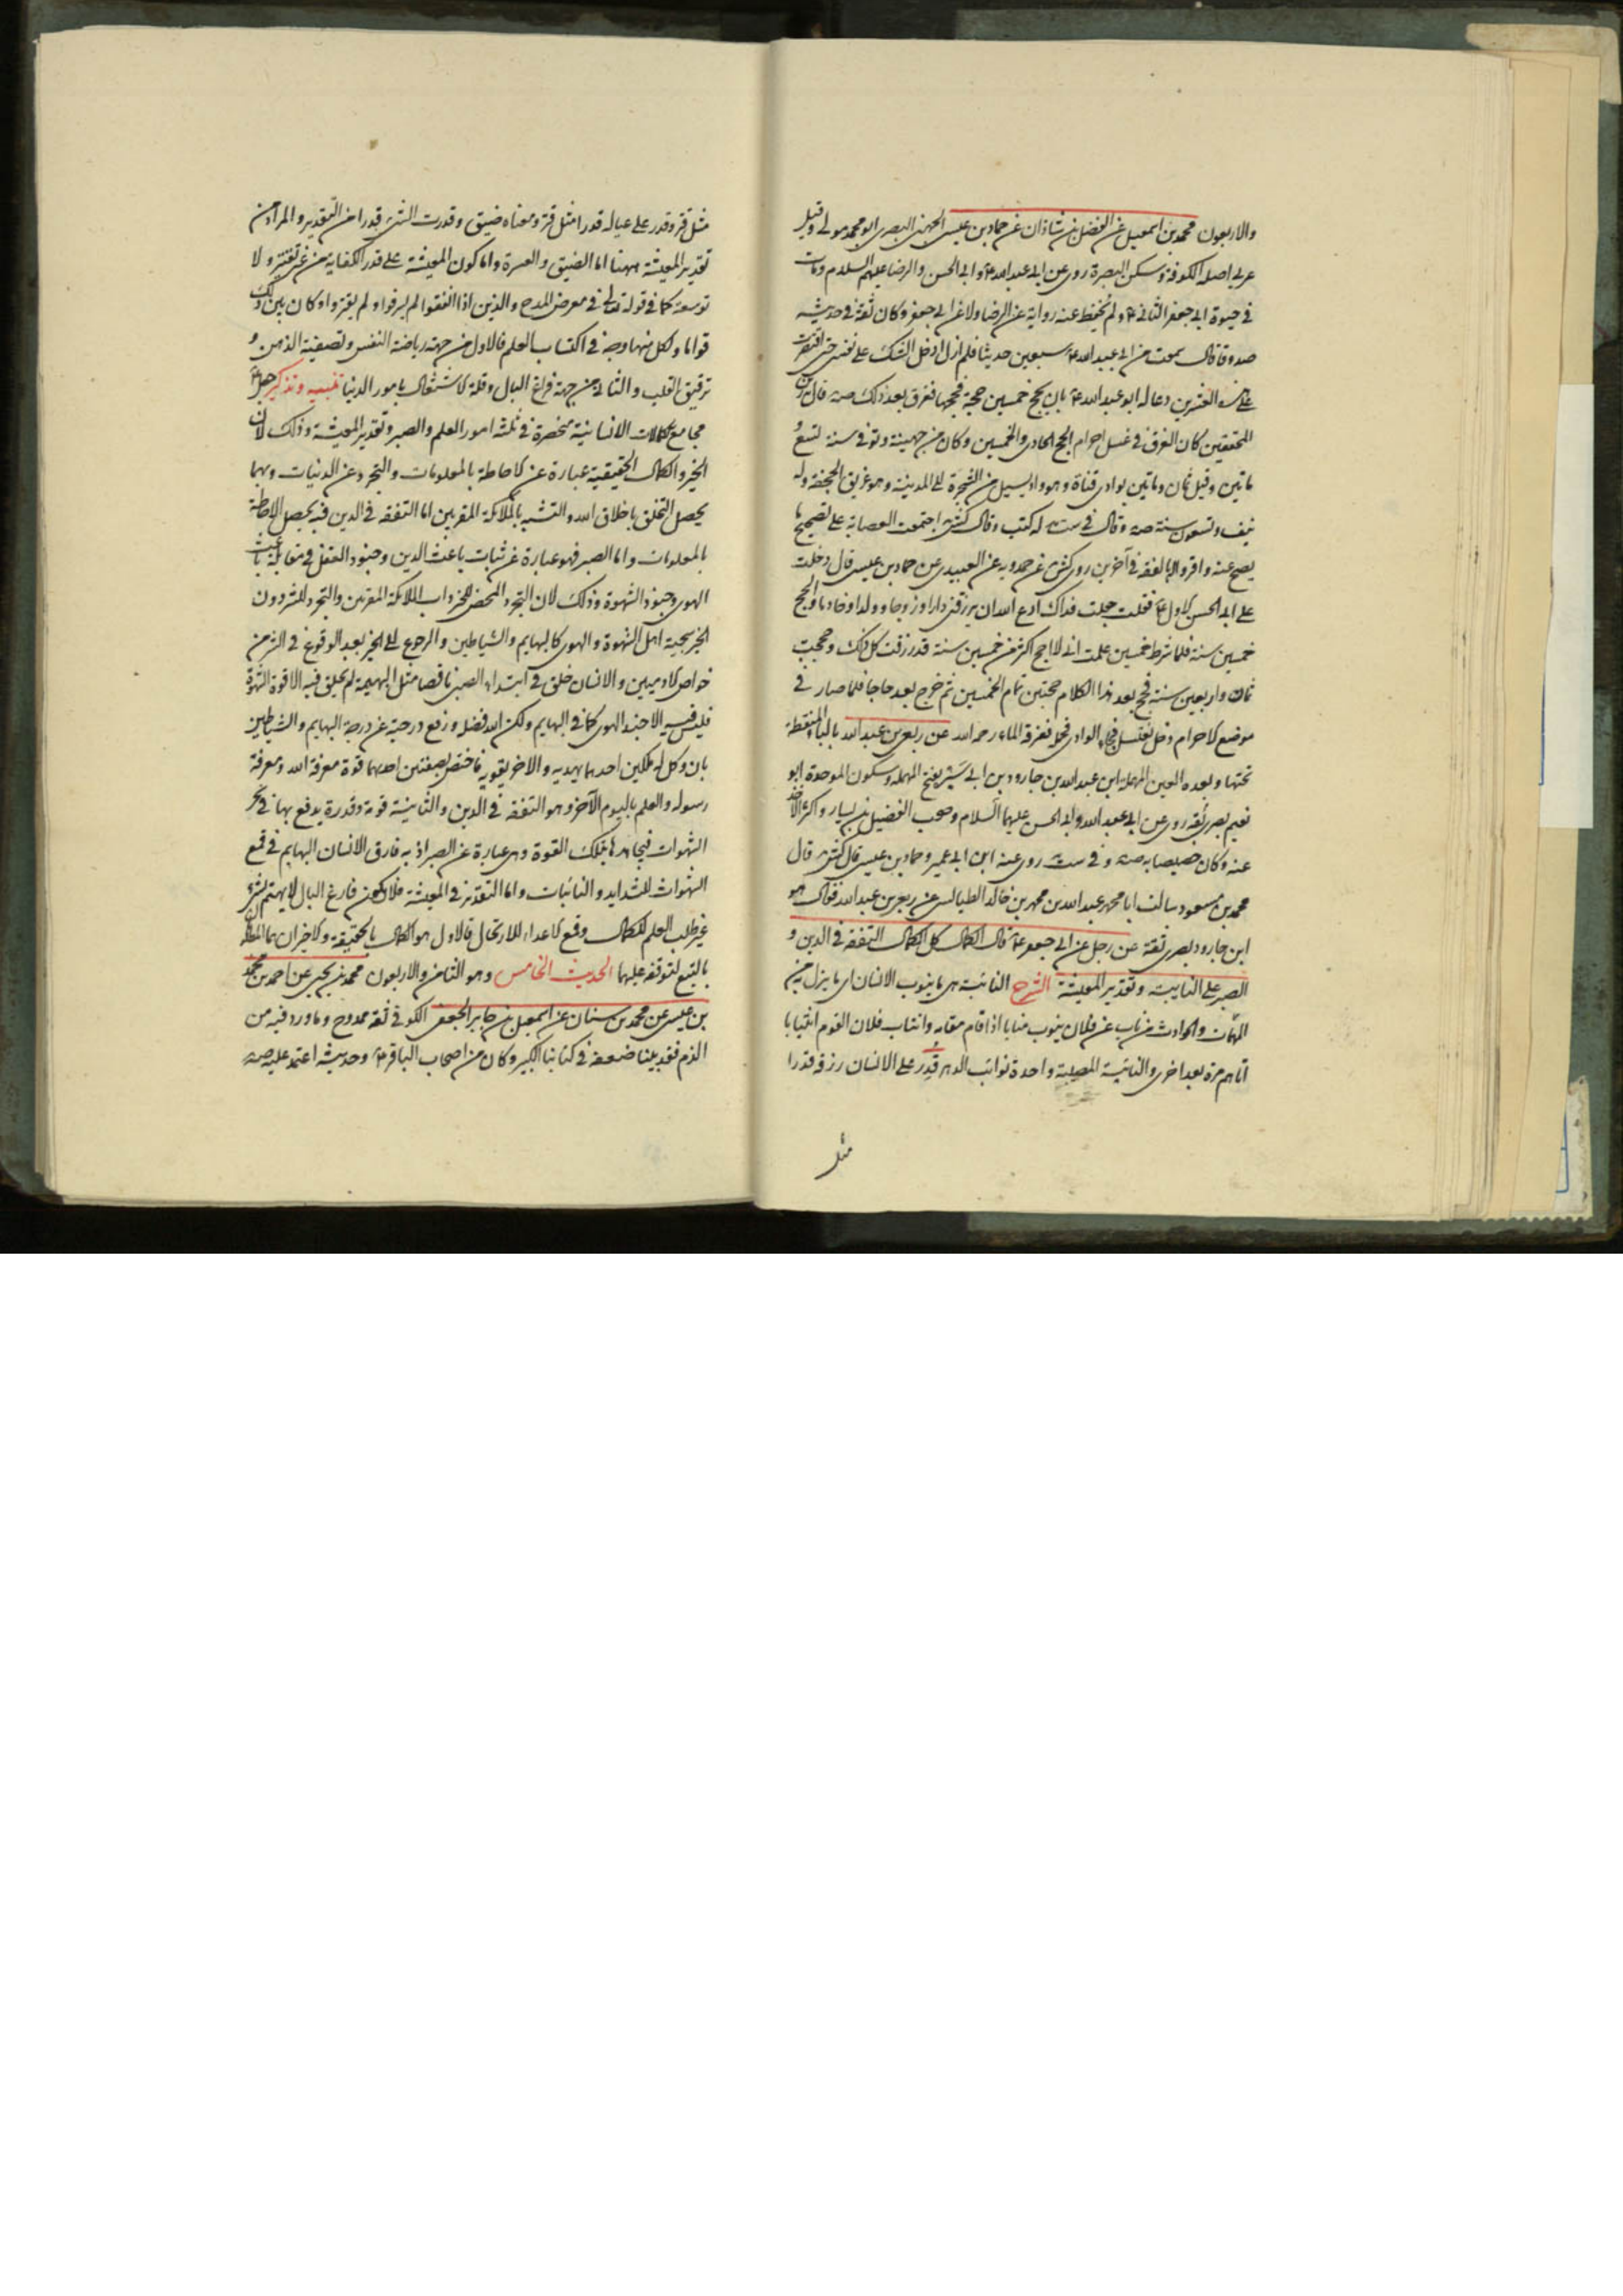 والاربعون محمد بن اسمعيل عن الفضل بن شاذان عن حماد بن عيسى الجهنى البصرى ابو محمد مولى وقيل
عربى اصله الكوفة وسكن البصرة روى عن ابى عبد الله ع وابى الحسن والرضا عليهم السلام ومات
فى حيوة ابى جعفر الثانى ع ولم يحفظ عنه رواية عن الرضا ولا عن ابى جعفر وكان ثقة فى حديثه
صدوقا قال سمعت من ابى عبد الله ع سبعين حديثا فلم ازل ادخل الشك على نفسى حتى اقتصرت
على هذه العشرين دعا له ابو عبد الله ع بان يحج خمسين حجة فحجها فغرق بعد ذلك صه قال بعض
المحققين كان الغرق فى غسل احرام الحج الحادى والخمسين وكان من جهينة وتوفى سنة تسع
ماتين وقيل ثمان وماتين بوادى قناة وهو واد يسيل من الشجرة الى المدينة وهو غريق الجحفة وله
نيف وتسعون سنة صه وقال فى ست له كتب وقال كش اجتمعت العصابة على تصحيح ما
يصح عنه واقروا له بالفقه فى آخرين روى كش عن حمدويه عن العبيدى عن حماد بن عيسى قال دخلت
على ابى الحسن الاول ع فقلت جعلت فداك ادع الله ان يرزقنى دارا وزوجة وولدا وخادما والحج
خمسين سنة فلما شرط خمسين علمت انى لا احج اكثر من خمسين سنة قد رزقت كل ذلك وحججت
ثمان واربعين سنة فحج بعد هذا الكلام حجتين تمام الخمسين ثم خرج بعد حاجا فلما صار فى
موضع الاحرام دخل يغتسل فجاء الوادى فحمله فغرقه الماء رحمه الله عن ربعى بن عبد الله بالباء المنقطة
تحتها وبعده العين المهملة ابن عبد الله بن جارود بن ابى سبرة بفتح المهملة وسكون الموحدة ابو
نعيم بصرى ثقة روى عن ابى عبد الله وابى الحسن عليهما السلام وصحب الفضيل بن يسار واكثر الاخذ
عنه وكان خصيصا به صه وفى ست روى عنه ابن ابى عمير وحماد بن عيسى قال كش قال
محمد بن مسعود سالت ابا محمد عبد الله بن محمد بن خالد الطيالسى عن ربعى بن عبد الله فقال هو
ابن جارود بصرى ثقة عن رجل عن ابى جعفر ع قال الكمال كل الكمال التفقه فى الدين و
الصبر على النايبة وتقدير المعيشة الشرح النائبة هى ما ينوب الانسان اى ما ينزل به من
المهمات والحوادث من ناب عن فلان ينوب منابا اذا قام مقامه وانتاب فلان القوم انتيابا
اتاهم مرة بعد اخرى والنائبة المصيبة واحدة نوائب الدهر قدر على الانسان رزقه قدرا
مثل
مثل قتر وقدر على عياله قدرا مثل قتر ومعناه ضيق وقدرت الشئ قدرا من التقدير والمراد من
تقدير المعيشة ههنا اما الضيق والعسرة واما كون المعيشة على قدر الكفاية من غير تقتير ولا
توسعة كما فى قوله تعالى فى معرض المدح والذين اذا انفقوا لم يسرفوا ولم يقتروا وكان بين ذلك
قواما ولكل منهما وجه فى اكتساب العلم فالاول من جهة رياضة النفس وتصفية الذهن و
ترقيق القلب والثانى من جهة فراغ البال وقلة الاشتغال بامور الدنيا تنبيه وتذكير جعل
مجامع الكمالات الانسانية منحصرة فى ثلثة امور العلم والصبر وتقدير المعيشة وذلك لان
الخير والكمال الحقيقية عبارة عن الاحاطة بالمعلومات والتجرد عن الدنيات وبهما
يحصل التخلق باخلاق الله والتشبه بالملائكة المقربين اما التفقه فى الدين فبه يحصل الاحاطة
بالمعلومات واما الصبر فهو عبارة عن ثبات باعث الدين وجنود العقل فى مقابلة باعث
الهوى وجنود الشهوة وذلك لان التجرد المحض للخير داب الملائكة المقربين والتجرد للشر دون
الخير سجية اهل الشهوة والهوى كالبهايم والشياطين والرجوع الى الخير بعد الوقوع فى الشر من
خواص الادميين والانسان خلق فى ابتداء الصبى ناقصا مثل البهيمة لم يخلق فيه الا قوة الشهوة
فليس فيه الا جند الهوى كما فى البهايم ولكن الله فضله ورفع درجته عن درجة البهايم والشياطين
بان وكل له ملكين احدهما يهديه والاخر يقويه فاختص بصفتين احدهما قوة معرفة الله ومعرفة
رسوله والعلم باليوم الآخر وهو التفقه فى الدين والثانية قوة وقدرة يدفع بها فى نحر
الشهوات فيجاهدها بتلك القوة وهى عبارة عن الصبر اذ به فارق الانسان البهايم فى قمع
الشهوات للشدايد والنائبات واما التقدير فى المعيشة فلان يكون فارغ البال لا يهتم لشئ
غير طلب العلم للكمال وقمع الاعداء للارتحال فالاول هو الكمال بالحقيقة والاخران هما المطلوبان
بالتبع لتوقفه عليهما الحديث الخامس وهو الثامن والاربعون محمد بن يحيى عن احمد بن محمد
بن عيسى عن محمد بن سنان عن اسمعيل بن جابر الجعفى الكوفى ثقة ممدوح وما ورد فيه من
الذم فقد بينا ضعفه فى كتابنا الكبير وكان من اصحاب الباقر ع وحديثه اعتمد عليه صه